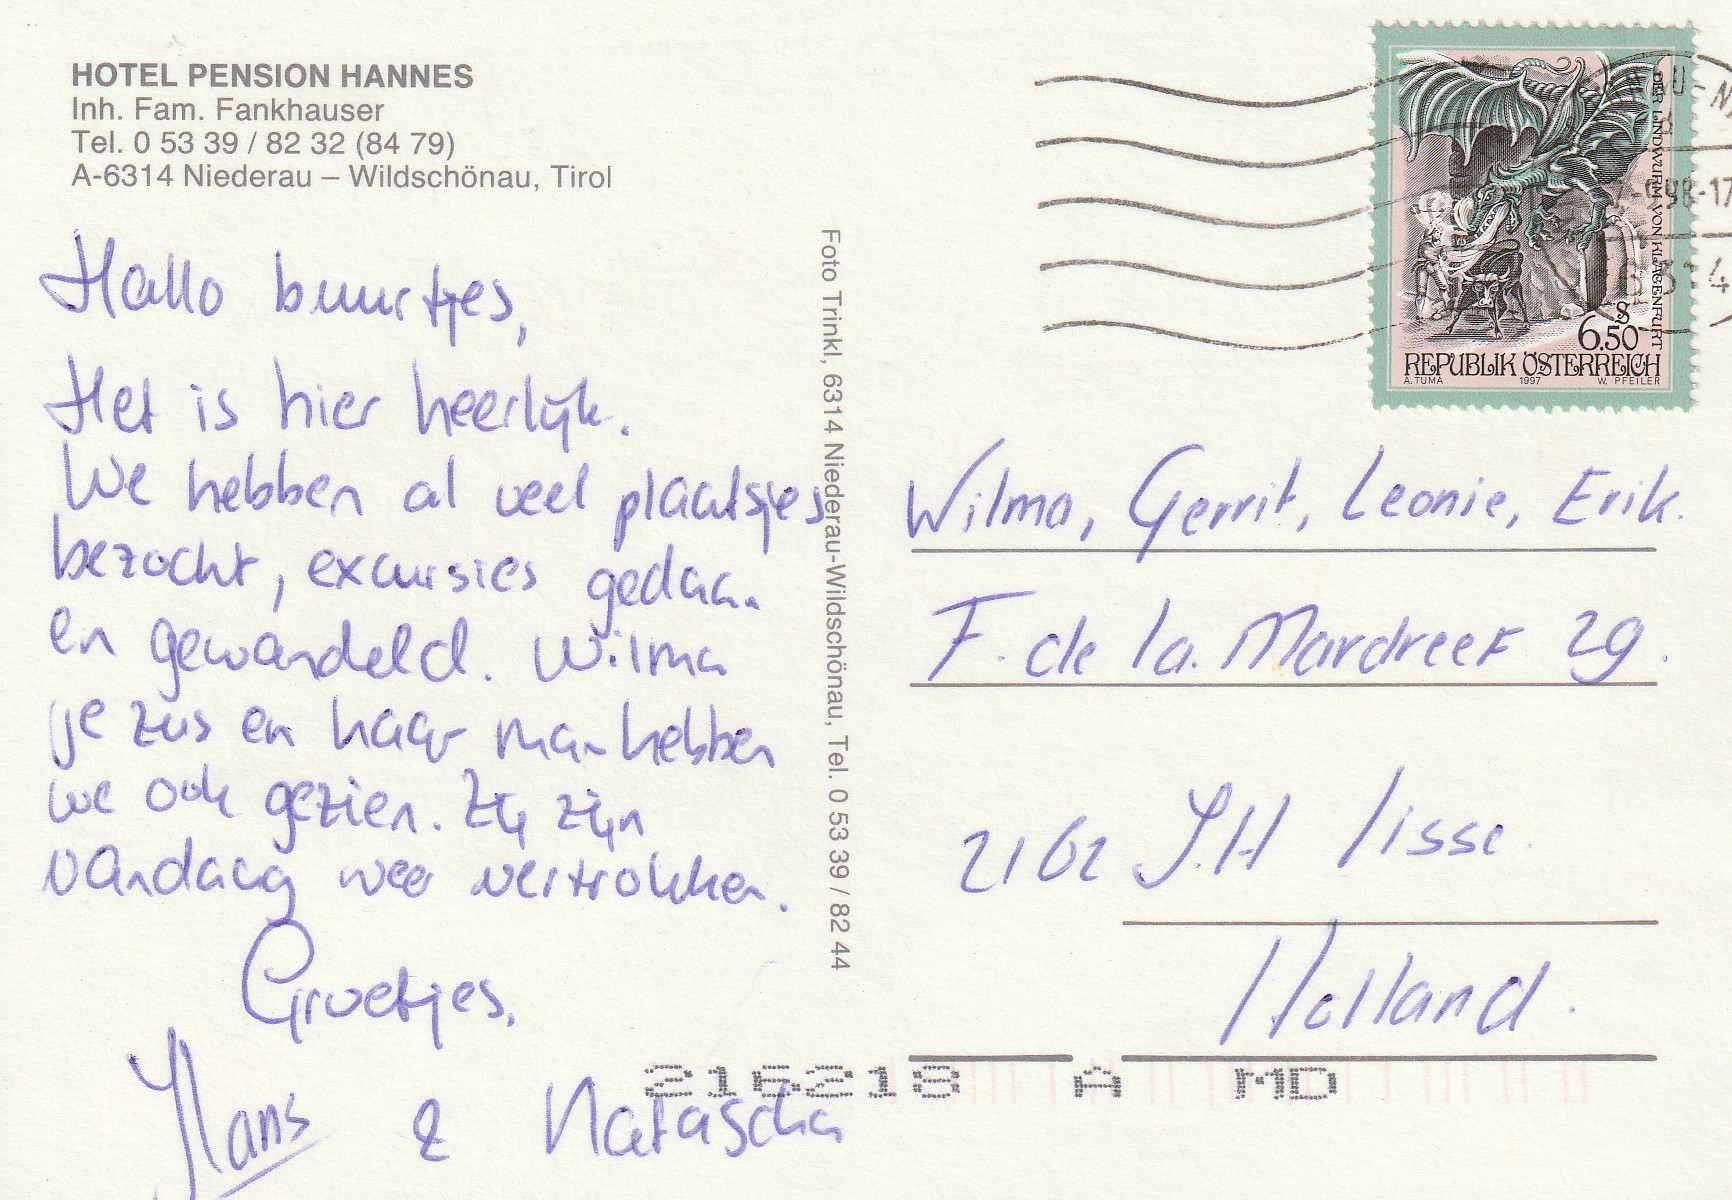 HOTEL PENSION HANNES
Inh. Fam. Fankhauser
Tel. 0 53 39 / 82 32 (84 79)
A-6314 Niederau – Wildschönau, Tirol
Hallo buurtjes,
Het is hier heerlijk.
We hebben al veel plaatsjes
bezocht, excursies gedaan
en gewandeld. Wilma
je zus en haar man hebben
we ook gezien. Zij zijn
vandaag weer vertrokken.
Groetjes,
Hans & Natascha
Foto Trinkl, 6314 Niederau-Wildschönau, Tel. 0 53 39 / 82 44
DER LINDWURM VON KLAGENFURT
S
6.50
REPUBLIK ÖSTERREICH
A. TUMA 1997 W. PFEILER
-9.98-17
Wilma, Gerrit, Leonie, Erik.
F. de la. Mardreef 29.
2162 J.H lisse.
Holland.
216218 A MD